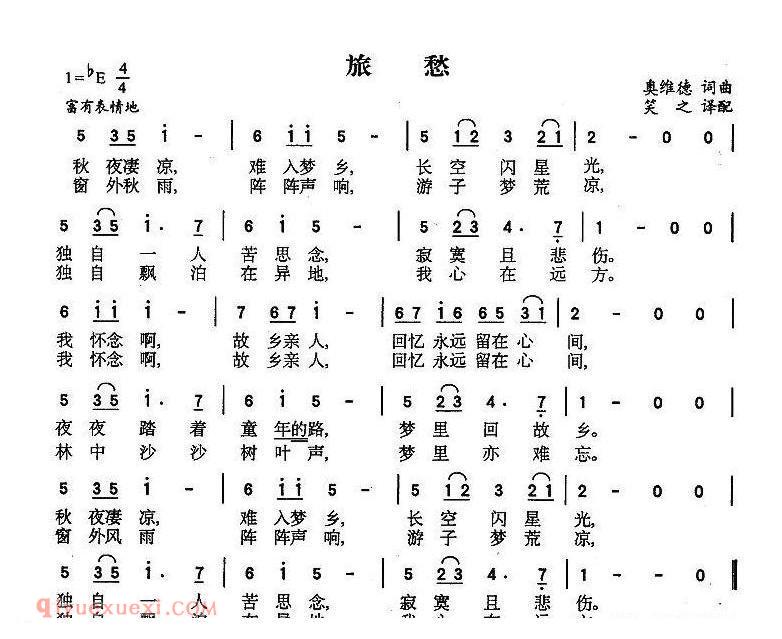 旅 愁
1=♭E 4/4
奥维德 词曲
富有表情地
笑 之 译配
5 35 i - | 6 ii 5 - | 5 12 3 21 | 2 - 0 0 |
秋 夜凄 凉, 难 入梦 乡, 长 空 闪 星 光,
窗 外秋 雨, 阵 阵声 响, 游 子 梦 荒 凉,
5 35 i. 7 | 6 i 5 - | 5 23 4. 7 | 1 - 0 0 |
独 自 一 人 苦 思 念, 寂 寞 且 悲 伤。
独 自 飘 泊 在 异 地, 我 心 在 远 方。
6 ii i - | 7 67 i - | 67 i6 65 31 | 2 - 0 0 |
我 怀念 啊, 故 乡亲 人, 回忆 永远 留在 心 间,
我 怀念 啊, 故 乡亲 人, 回忆 永远 留在 心 间,
5 35 i. 7 | 6 i 5 - | 5 23 4. 7 | 1 - 0 0 |
夜 夜 踏 着 童 年的 路, 梦 里 回 故 乡。
林 中 沙 沙 树 叶 声, 梦 里 亦 难 忘。
5 35 i - | 6 ii 5 - | 5 12 3 21 | 2 - 0 0 |
秋 夜凄 凉, 难 入梦 乡, 长 空 闪 星 光,
窗 外风 雨 阵 阵声 响, 游 子 梦 荒 凉,
5 35 i. 7 | 6 i 5 - | 5 23 4. 7 | 1 - 0 0 ‖
独 自 一 人 苦 思 念, 寂 寞 且 悲 伤。
独 自 飘 泊 在 异 地, 我 心 在 远 方。
qiyuexuexi.com